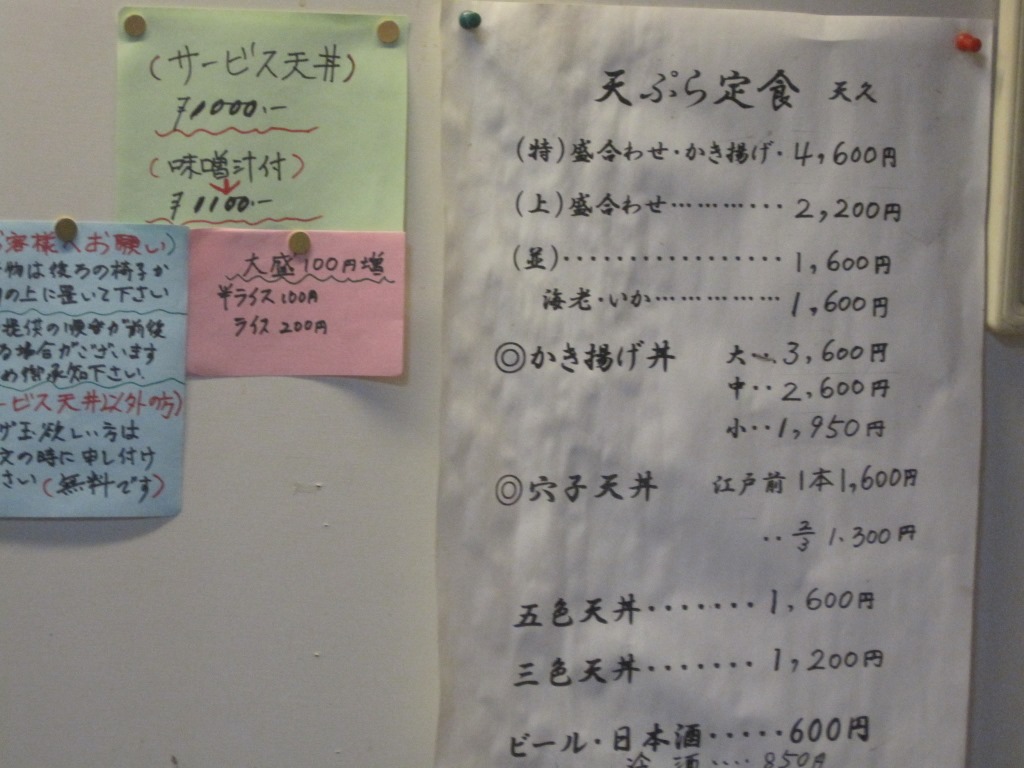 (サービス天丼)
¥1000.-
(味噌汁付)
¥1100.-
客様へお願い)
物は後ろの椅子か
の上に置いて下さい
提供の順番が前後
る場合がございます
め御承知下さい.
ービス天丼以外の方)
げ玉欲しい方は
文の時に申し付け
さい(無料です)
大盛100円増
半ライス100円
ライス 200円
天ぷら定食 天久
(特)盛合わせ・かき揚げ・4,600円
(上)盛合わせ………… 2,200円
(並)……………… 1,600円
海老・いか………… 1,600円
◎かき揚げ丼 大…3,600円
中‥2,600円
小‥1,950円
◎穴子天丼 江戸前1本1,600円
‥2/3 1.300円
五色天丼……・1,600円
三色天丼……・1,200円
ビール・日本酒・・・・・600円
冷酒‥‥850円